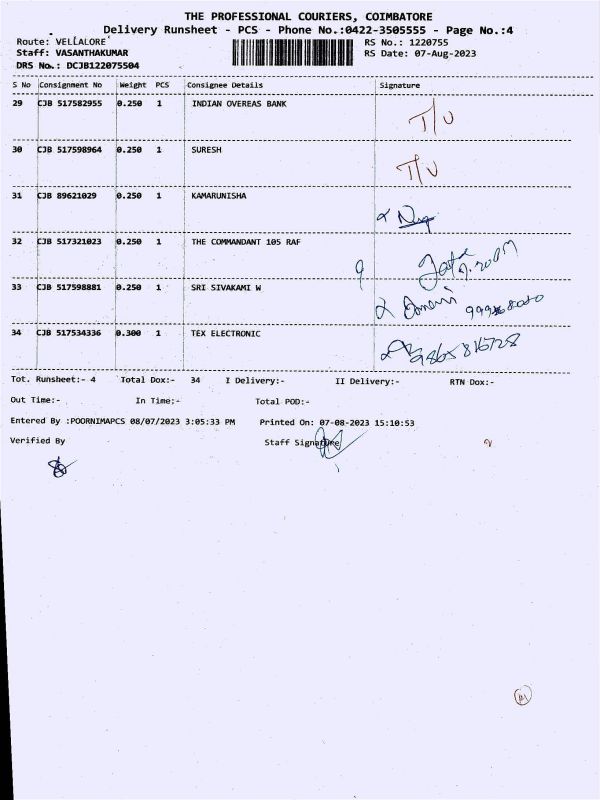 THE PROFESSIONAL COURIERS, COIMBATORE
Delivery Runsheet - PCS - Phone No.:0422-3505555 - Page No.:4
Route: VELLALORE RS No.: 1220755
Staff: VASANTHAKUMAR RS Date: 07-Aug-2023
DRS No.: DCJB122075504
S No Consignment No Weight PCS Consignee Details Signature
29 CJB 517582955 0.250 1 INDIAN OVEREAS BANK T/U
30 CJB 517598964 0.250 1 SURESH T/U
31 CJB 89621029 0.250 1 KAMARUNISHA
32 CJB 517321023 0.250 1 THE COMMANDANT 105 RAF
33 CJB 517598881 0.250 1 SRI SIVAKAMI W
34 CJB 517534336 0.300 1 TEX ELECTRONIC 9865816728
Tot. Runsheet:- 4 Total Dox:- 34 I Delivery:- II Delivery:- RTN Dox:-
Out Time:- In Time:- Total POD:-
Entered By :POORNIMAPCS 08/07/2023 3:05:33 PM Printed On: 07-08-2023 15:10:53
Verified By Staff Signature